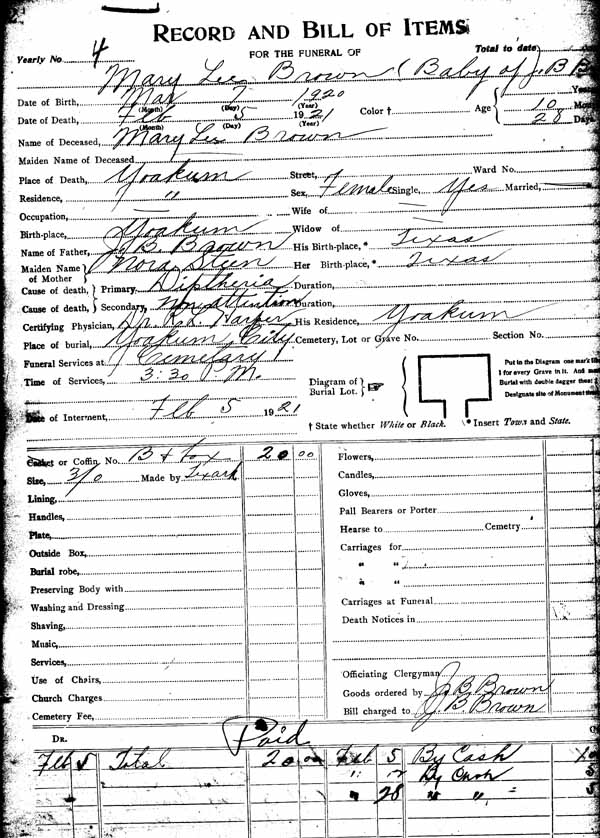 RECORD AND BILL OF ITEMS
Yearly No 4 FOR THE FUNERAL OF Total to date
Mary Lee Brown (Baby of J. B B
Date of Birth, Mar 7 1920 Years
(Month) (Day) (Year) Color † Age 10 Mo
Date of Death, Feb 5 1921 28 Days
(Month) (Day) (Year)
Name of Deceased, Mary Lee Brown
Maiden Name of Deceased
Place of Death, Yoakum Street, Ward No.
Residence, " Sex, Female Single, Yes Married,
Occupation, Wife of
Birth-place, Yoakum Widow of
Name of Father, J. B. Brown His Birth-place, * Texas
Maiden Name of Mother Nora Steen Her Birth-place, * Texas
Cause of death, Primary, Diptheria Duration,
Cause of death, Secondary, Non attention Duration,
Certifying Physician, Dr. Harper His Residence, Yoakum
Place of burial, Yoakum City Cemetery, Lot or Grave No. Section No.
Funeral Services at Cemetary
Time of Services, 3:30 P M.
Diagram of Burial Lot.
Put in the Diagram one mark
1 for every Grave in it. And
Burial with double dagger thus
Designate site of Monument
Date of Interment, Feb 5 1921
† State whether White or Black. * Insert Town and State.
Casket or Coffin No. B & Fox 20 00 Flowers,
Size, 3/0 Made by Texark Candles,
Lining, Gloves,
Handles, Pall Bearers or Porter
Plate, Hearse to Cemetry
Outside Box, Carriages for
Burial robe, " "
Preserving Body with " "
Washing and Dressing Carriages at Funeral
Shaving, Death Notices in
Music,
Services,
Use of Chairs, Officiating Clergyman
Church Charges Goods ordered by J. B. Brown
Cemetery Fee, Bill charged to J. B. Brown
DR. Paid
Feb 5 Total 20 00 Feb 5 By Cash
" By Cash
" 28 " "